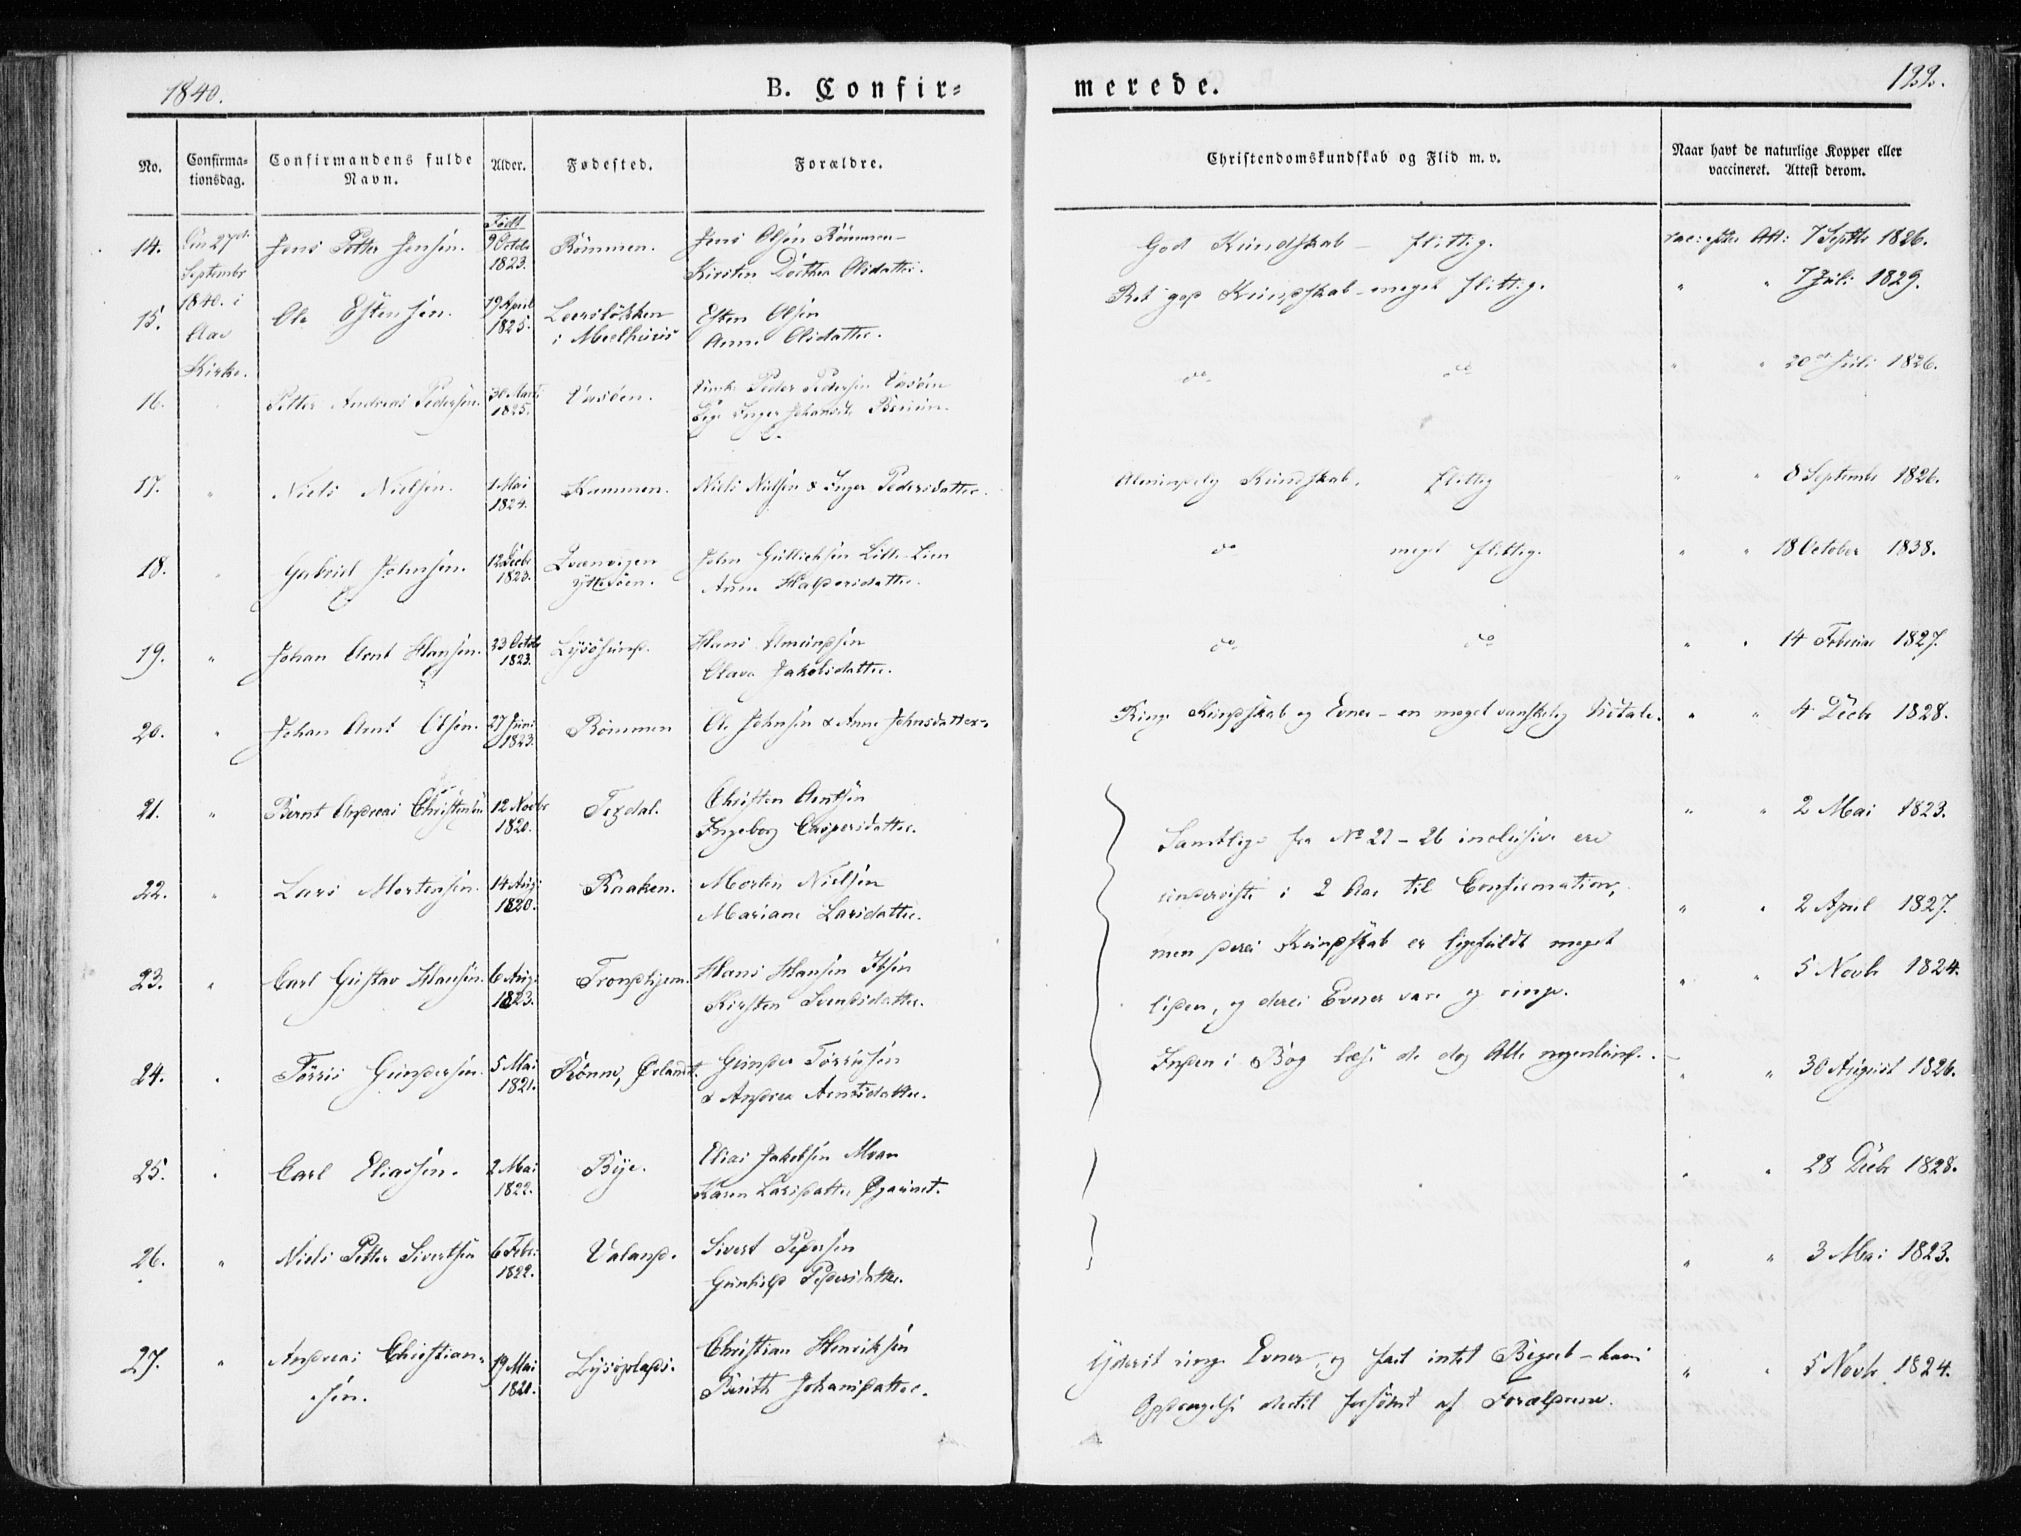 1840.
B. Confir=
merede.
122.
No.
Confirma=
tionsdag.
Confirmandens fulde
Navn.
Alder.
Fødested.
Forældre.
Christendomskundskab og Flid m. v.
Naar havt de naturlige Kopper eller
vaccineret. Attest derom.
Født
14. Den 27de Jens Petter Jensen. 9 Octbr Rømmen. Jens Olsen Rømmen - God Kundskab - flittig. vac: efter Att: 7 Septbr 1826.
Septembr 1823. Kirsten Dorthea Olsdatter.
15. 1840. i Ole Estensen. 19 April Leersløkken Esten Olsen Ret god Kundskab - meget flittig. " " 7 Juli 1829.
Aae 1825. i Meelhuus Anne Olsdatter.
Kirke.
16. Petter Andreas Pedersen. 30 Marts Vasøen. Peder Pedersen Vasøen do do " " 20de Juli 1826.
1825. Pige Inger
17. " Niels Nielsen. 1 Mai Kammen. Niels Nielsen & Inger Pedersdatter. Almindelig Kundskab. flittig " " 8 Septembr 1826.
1824.
18. " Gabriel Johnsen. 12 Decbr Qvænvigen John Gullichsen Lille-Lien do meget flittig. " " 18 October 1838.
1823. ytterøen. Anne Halvorsdatter.
19. " Johan Arnt Hansen. 23 Octobr Lysøsund. Hans Amundsen do do " " 14 Februar 1827.
1823. Olava Jakobsdatter.
20. " Johan Arnt Olsen. 27 Juni Rømmen Ole Johnsen & Anne Johnsdatter. Ringe Kundskab og Evner - en meget vanskelig Udtale. " " 4 Decbr 1828.
1823.
21. " Bernt Andreas Christensen 12 Novbr Texdal. Christen Arntsen " " 2 Mai 1823.
1820. Ingeborg Caspersdatter. Samtlige fra No 21 - 26 inclusive ere
22. " Lars Mortensen. 14 Aug: Kraaken. Morten Nielsen underviste i 2 Aar til Confirmation, " " 2 April 1827.
1820. Mariane Larsdatter.
23. " Carl Gustav Hansen. 6 Aug: Trondhjem. Hans Hansen Ibsen men deres Kundskab er ligefuldt meget " " 5 Novbr 1824.
1823. Kirsten Svendsdatter. liden, og deres Evner vare og ringe.
24. " Tørris Gundersen. 5 Mai Rønne, Ørlandet. Gunder Tørrisen Inden i Bog læse de dog Alle nogenlunde. " " 30 August 1826.
1821. & Andrea Arntsdatter.
25. " Carl Eliassen. 2 Mai Bye. Elias Jakobsen Moan " " 28 Decbr 1828.
1822. Karen Larsdatter
26. " Niels Petter Sivertsen 6 Febr: Valand. Sivert Pedersen " " 3 Mai 1823.
1822. Gunhild Pedersdatter.
27. " Andreas Christian- 19 Mai Lysøplads. Christian Henriksen Yderst ringe Evner, og fast intet Begreb - hans " " 5 Novbr 1824.
sen. 1821. Berith Johansdatter. Opdragelse dertil forsømt af Forældrene.